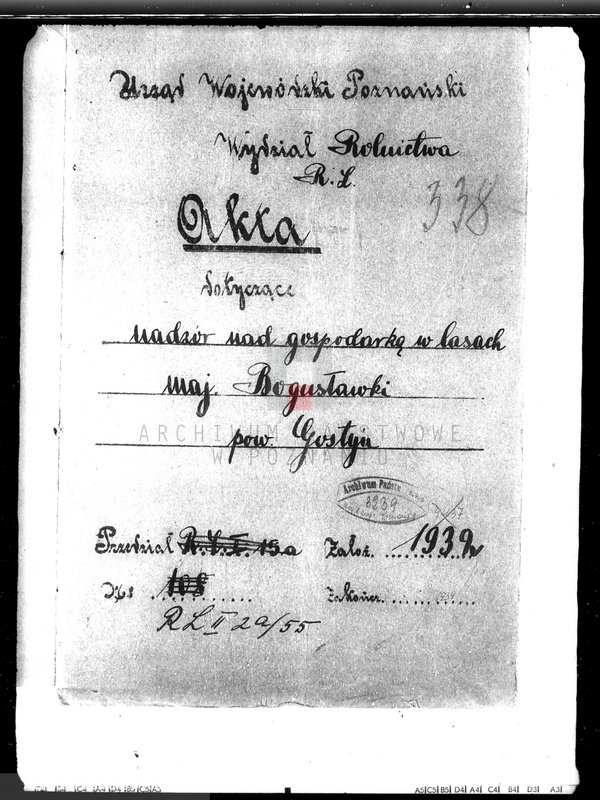 Urząd Wojewódzki Poznański
Wydział Rolnictwa
R. L.
338
Akta
dotyczące
nadzór nad gospodarką w lasach
maj. Bogusławki
ARCHIWUM PAŃSTWOWE
W POZNANIU
pow. Gostyń
Archiwum Państw.
3239
Przedział R. L. I. 15a
Założ. 1932
Nr 108
Zakończ.
RL II 2a/55
C4 A4 D4 B5 C5 A5
A5 C5 B5 D4 A4 C4 B4 D3 A3